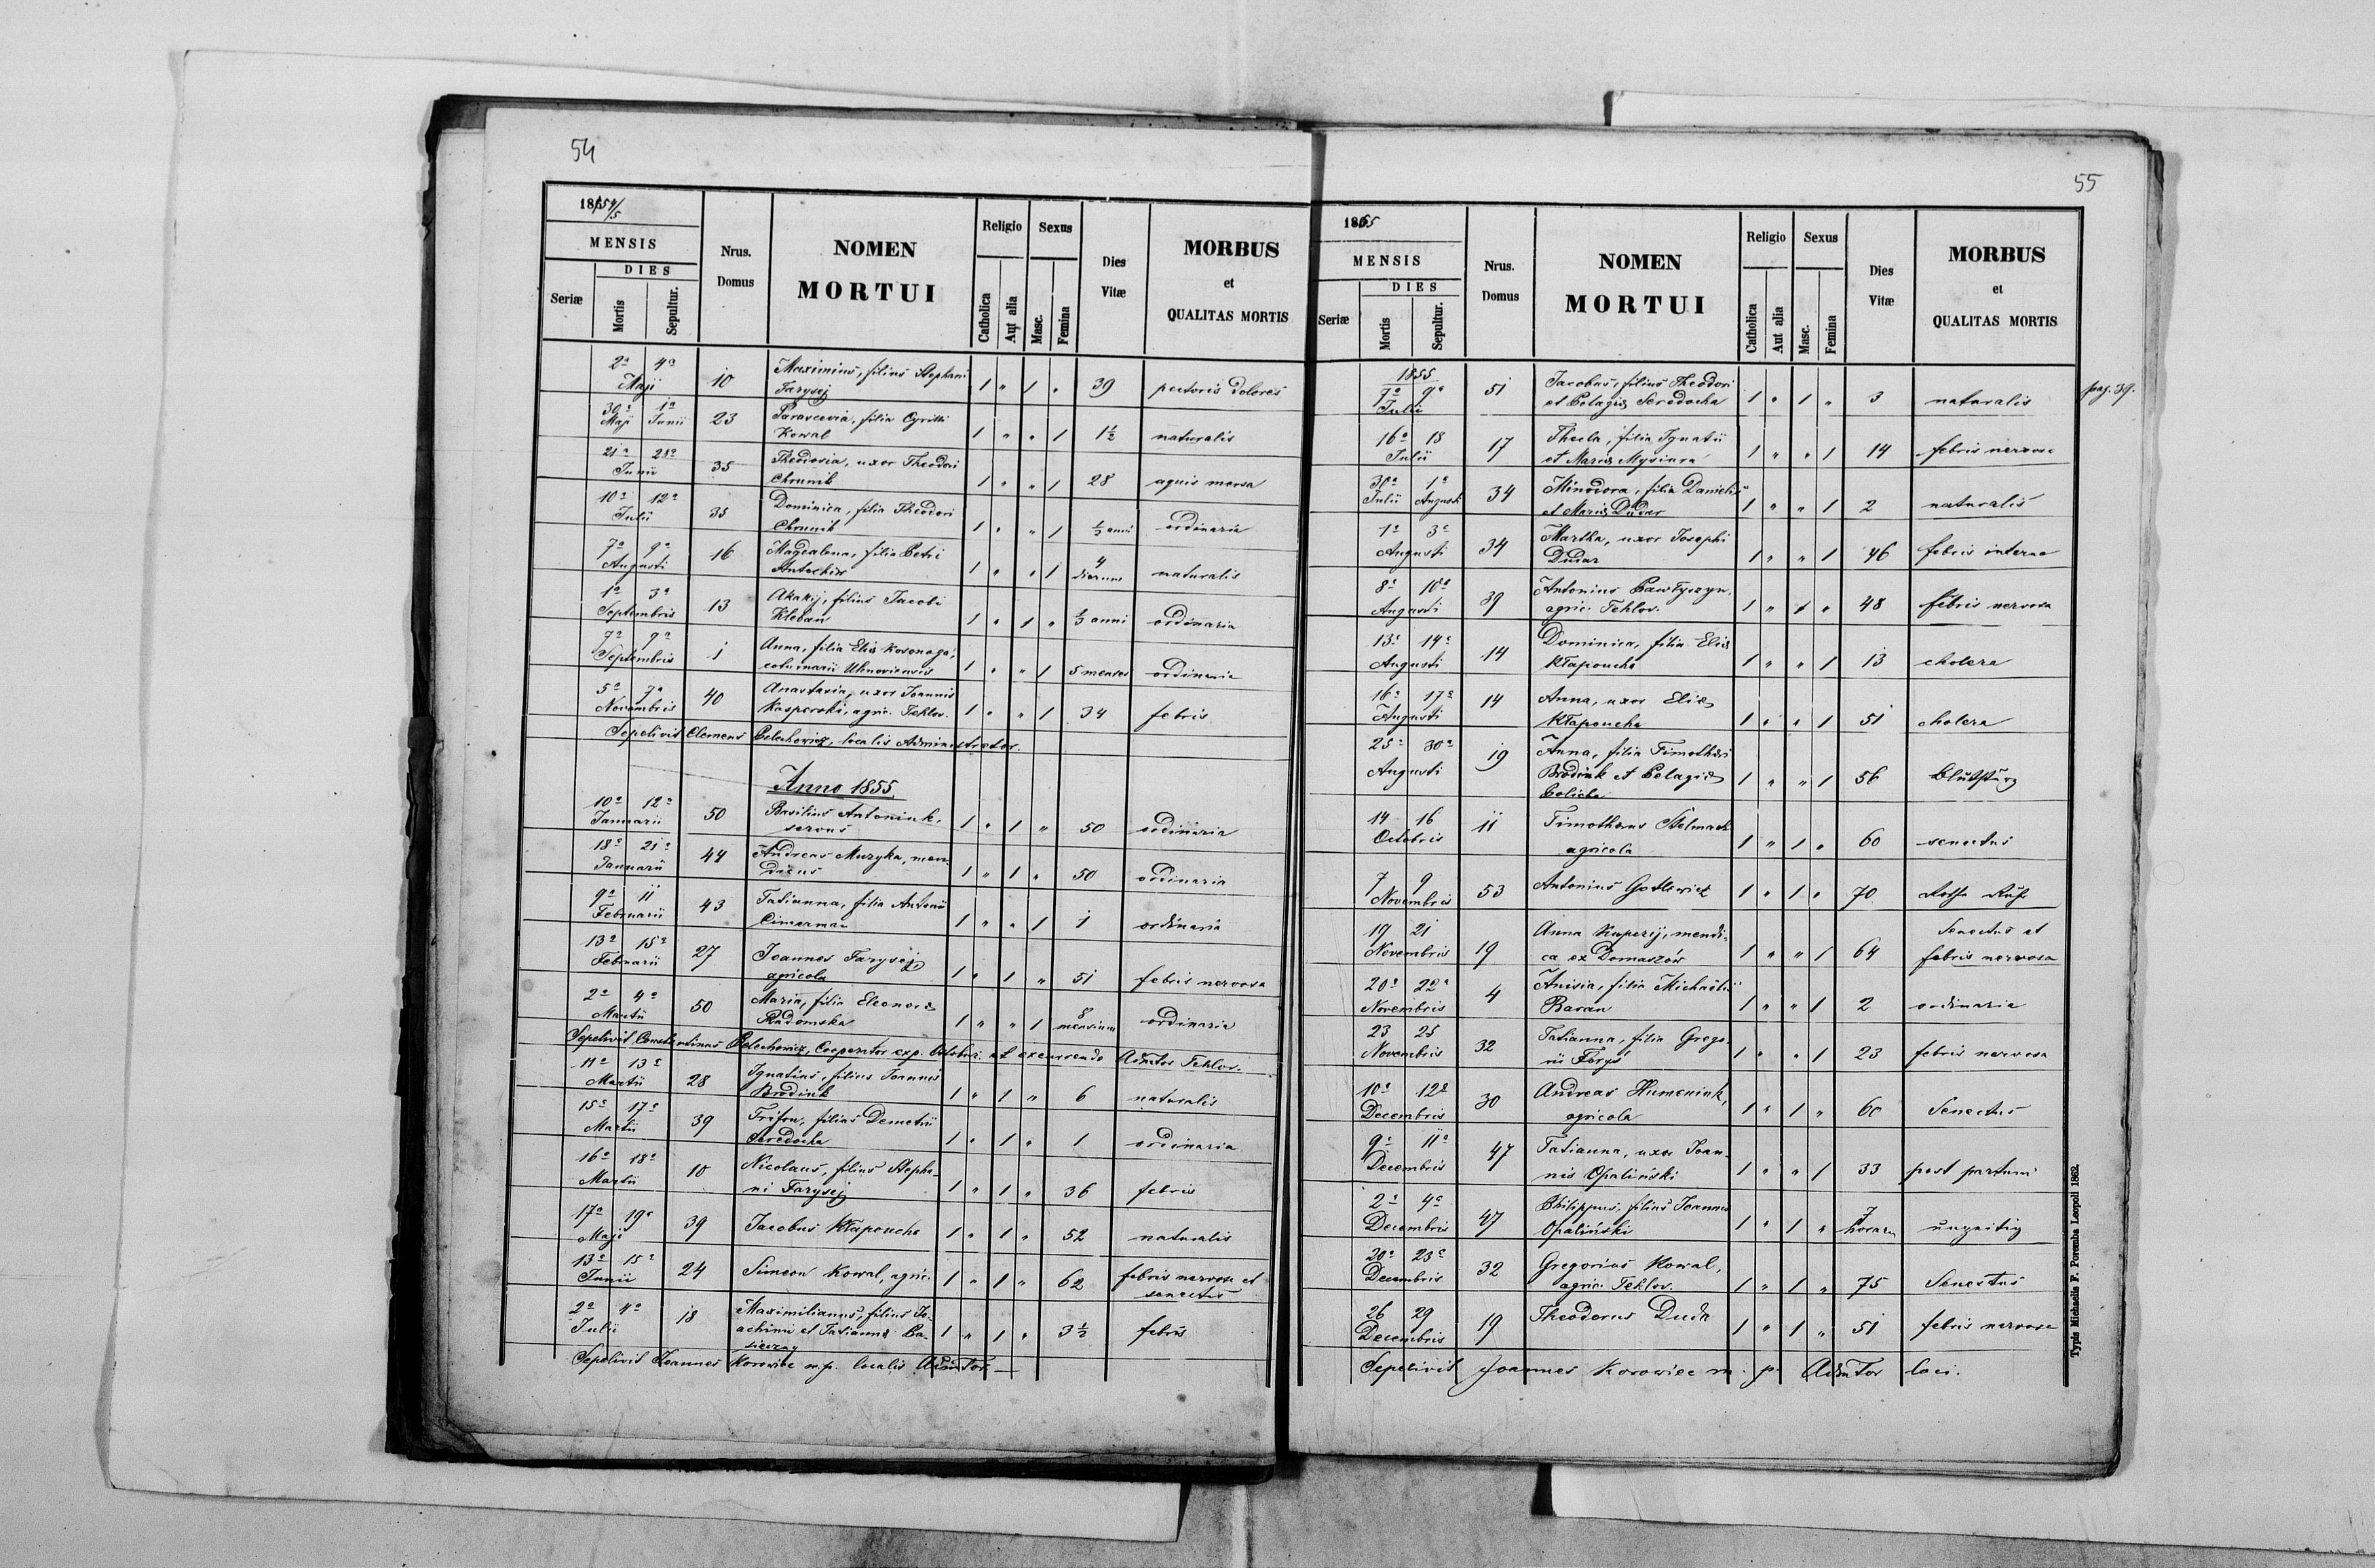 54
1854/5
MENSIS
DIES
Seriæ
Mortis
Sepultur.
Nrus.
Domus
NOMEN
MORTUI
Religio
Sexus
Catholica
Aut alia
Masc.
Femina
Dies
Vitæ
MORBUS
et
QUALITAS MORTIS
2a 4a Maji 10 Maximius, filius Stephani
Farysej 1 " 1 " 39 pectoris dolores
30a Maji 1a Junii 23 Parascevia, filia Cyrilli
Kowal 1 " " 1 1½ naturalis
21a 23a Junii 35 Theodosia, uxor Theodori
Chrunik 1 " " 1 28 aquis mersa
10a 12a Julii 35 Dominica, filia Theodori
Chrunik 1 " " 1 ½ anni ordinaria
7a 9a Augusti 16 Magdalena, filia Petri
1 " " 1 4 dierum naturalis
1a 3a Septembris 13 Akakij, filius Jacobi
Kleban 1 " 1 " ½ anni ordinaria
7a 9a Septembris 1 Anna, filia Eliæ Kosonoga,
Uhnoviensis 1 " " 1 5 menses ordinaria
5a 7a Novembris 40 Anastasia, uxor Joannis
Kasperski, agric. Tehlov. 1 " " 1 34 febris
Sepelivit Clemens Pelechowicz, localis Administrator.
Anno 1855
10a 12a Januarii 50 Basilius Antoniuk,
servus 1 " 1 " 50 ordinaria
18a 21a Januarii 44 Andreas Muzyka, men-
dicus 1 " 1 " 50 ordinaria
9a 11 Februarii 43 Tatianna, filia Antonii
Cimerman 1 " " 1 1 ordinaria
13a 15a Februarii 27 Joannes Farysej
agricola 1 " 1 " 51 febris nervosa
2a 4a Martii 50 Maria, filia Eleonoræ
Radomska 1 " " 1 8 mensium ordinaria
Sepelivit Constantinus Pelechowicz, Cooperator exp. et excurrendo Admtor Tehlov.
11a 13a Martii 28 Ignatius, filius Joannis
Brodiuk 1 " 1 " 6 naturalis
15a 17a Martii 39 Trifon, filius Demetrii
Seredocha 1 " 1 " 1 ordinaria
16a 18a Martii 10 Nicolaus, filius Stepha-
ni Farysej 1 " 1 " 36 febris
17a 19a Maji 39 Jacobus Kłapoucha 1 " 1 " 52 naturalis
13a 15a Junii 24 Simeon Kowal, agric. 1 " 1 " 62 febris nervosa et
senectus
2a 4a Julii 18 Maximilianus, filius Jo-
achimi et Tatiannæ 1 " 1 " 3½ febris
Sepelivit Joannes Korowiec m.p. localis Admtor
55
1855
MENSIS
DIES
Seriæ
Mortis
Sepultur.
Nrus.
Domus
NOMEN
MORTUI
Religio
Sexus
Catholica
Aut alia
Masc.
Femina
Dies
Vitæ
MORBUS
et
QUALITAS MORTIS
1855
7a 9a Julii 51 Jacobus, filius Theodori
et Pelagiæ Seredocha 1 " 1 " 3 naturalis pag. 39.
16a 18 Julii 17 Thecla, filia Ignatii
et Mariæ Mysiura 1 " " 1 14 febris nervosa
30a Julii 1a Augusti 34 Minodora, filia Danielis
et Mariæ Dudar 1 " " 1 2 naturalis
1a 3a Augusti 34 Martha, uxor Josephi
Dudar 1 " " 1 46 febris interna
8a 10a Augusti 39 Antonius Pawłyszyn,
agric. Tehlov. 1 " 1 " 48 febris nervosa
13a 14a Augusti 14 Dominica, filia Eliæ
Kłapoucha 1 " " 1 13 cholera
16a 17a Augusti 14 Anna, uxor Eliæ
Kłapoucha 1 " " 1 51 cholera
28a 30a Augusti 19 Anna, filia Timothæi
Brodiuk et Pelagiæ
1 " " 1 56 Blutsturz
14 16 Octobris 11 Timotheus Stelmach
agricola 1 " 1 " 60 senectus
7 9 Novembris 53 Antonius Gotlewicz 1 " 1 " 70 Rothe Ruhr
19 21 Novembris 19 Anna Kuperij, mendi-
ca ex Domaszów 1 " " 1 64 Senectus et
febris nervosa
20a 22a Novembris 4 Anisia, filia Michaëlis
Baran 1 " " 1 2 ordinaria
23 25 Novembris 32 Tatianna, filia Grego-
rii Forys 1 " " 1 23 febris nervosa
10a 12a Decembris 30 Andreas Humeniuk,
agricola 1 " 1 " 60 Senectus
9a 11a Decembris 47 Tatianna, uxor Joan-
nis Opaliński 1 " " 1 33 post partum
2a 4a Decembris 47 Philippus, filius Joannis
Opaliński 1 " 1 " 7 horarum unzeitig
20a 23a Decembris 32 Gregorius Kowal,
agric. Tehlov. 1 " 1 " 75 Senectus
26 29 Decembris 19 Theodorus Duda 1 " 1 " 51 febris nervosa
Sepelivit Joannes Korowiec m. p. Admtor loci.
Typis Michaelis F. Poremba Leopoli 1862.